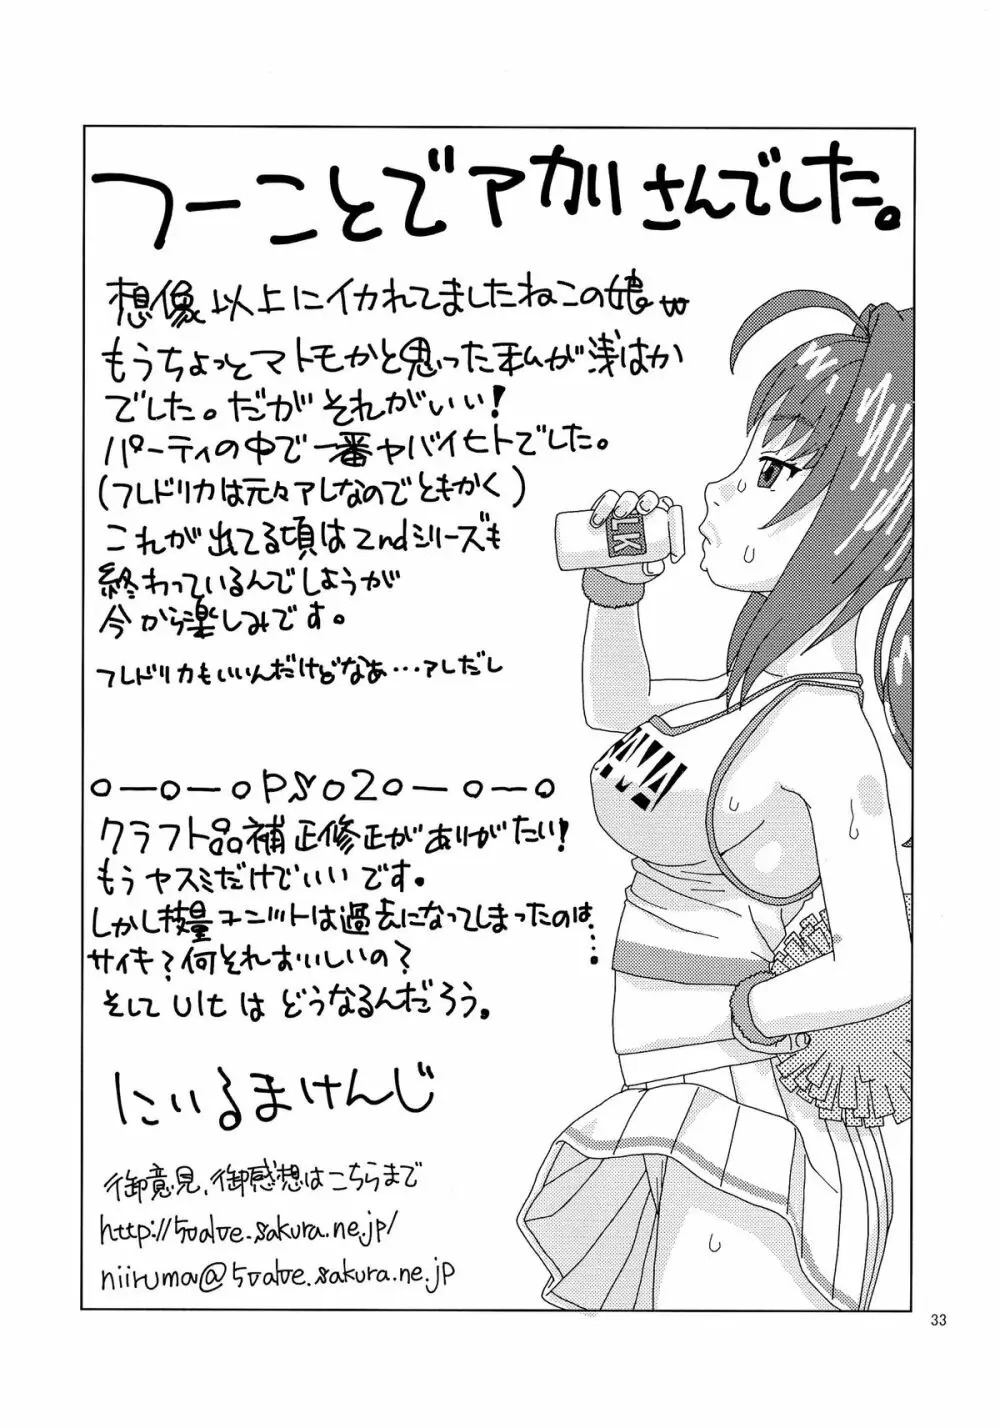 つーことでアカリさんでした。
想像以上にイカれてましたねこの娘w
もうちょっとマトモかと思った私が浅はか
でした。だがそれがいい!
パーティの中で一番ヤバイヒトでした。
(フレドリカは元々アレなのでともかく)
これが出てる頃は2ndシリーズも
終わっているんでしようが
今から楽しみです。
フレドリカもいいんだけどなぁ…アレだし
o—o—oPSO2o—o—o
クラフト品補正修正がありがたい!
もうヤスミだけでいいです。
しかし技量ユニットは過去になってしまったのは…
サイキ?何それおいしいの?
そしてUltはどうなるんだろう。
にいるまけんじ
御意見、御感想はこちらまで
http://5valve.sakura.ne.jp/
niiruma@5valve.sakura.ne.jp
LK
33